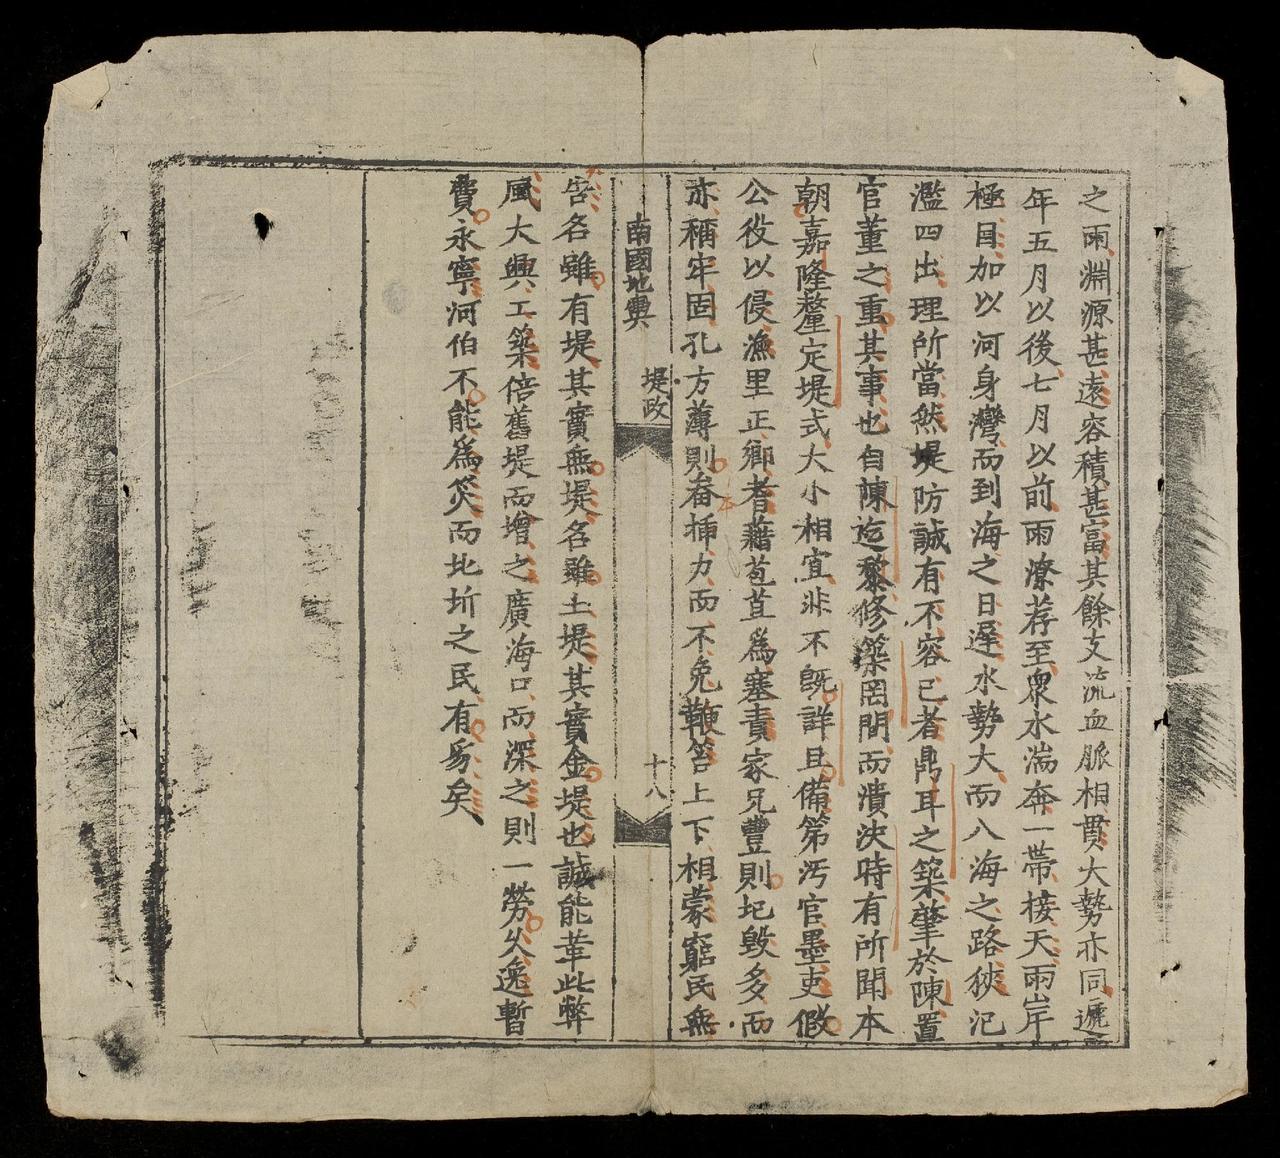 之雨淵源甚遠容積甚富其餘支流血脈相貫大勢亦同遞
年五月以後七月以前雨潦荐至衆水湍奔一帶接天兩岸
極目加以河身灣而到海之日遲水勢大而入海之路狹汜
濫四出理所當然堤防誠有不容已者鼎耳之築肇於陳置
官董之重其事也自陳迄黎修築罔間而潰決時有所聞本
朝嘉隆釐定堤式大小相宜非不旣詳且備第汚官墨吏假
公役以侵漁里正鄉耆藉苞苴爲塞責家兄豐則圮毀多而
亦稱牢固孔方薄則畚揷力而不免鞭笞上下相蒙窮民無
南國地輿 堤政 十八
告名雖有堤其實無堤名雖土堤其實金堤也誠能革此弊
風大興工築倍舊堤而增之廣海口而深之則一勞久逸暫
費永寧河伯不能爲災而圮圻之民有豸矣